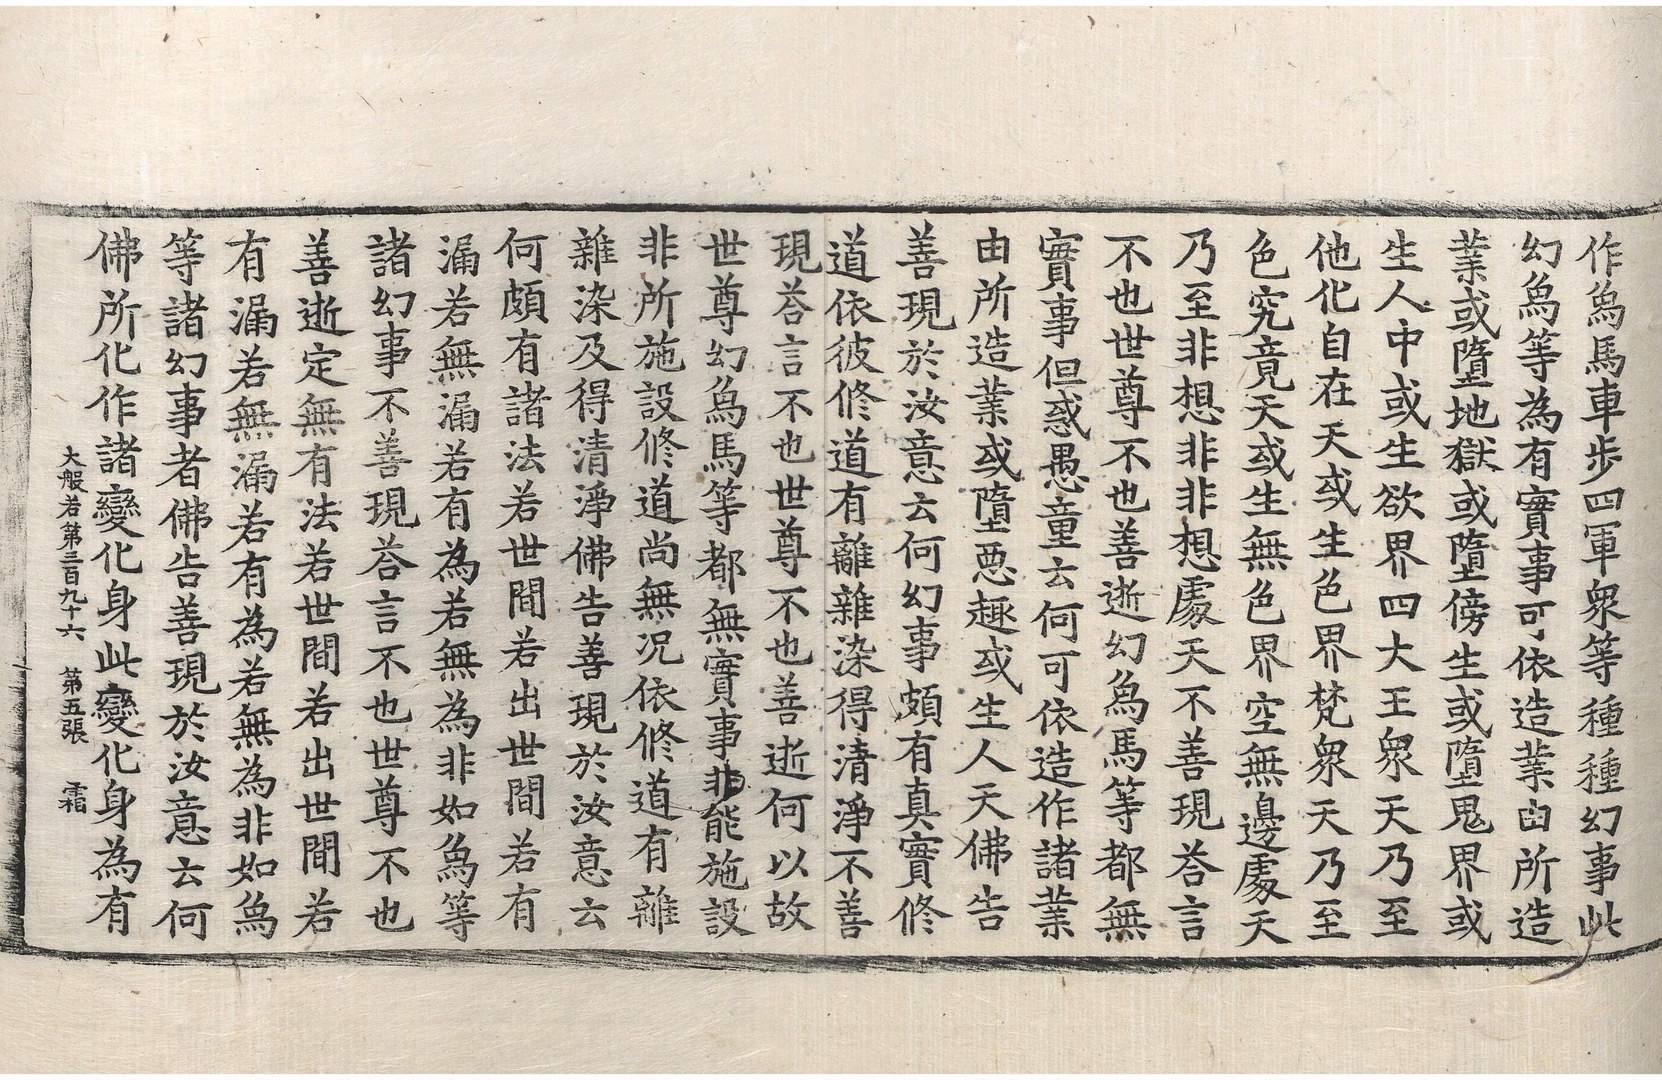 作象馬車步四軍衆等種種幻事此
幻象等為有實事可依造業由所造
業或墮地獄或墮傍生或墮鬼界或
生人中或生欲界四大王衆天乃至
他化自在天或生色界梵衆天乃至
色究竟天或生無色界空無邊處天
乃至非想非非想處天不善現荅言
不也世尊不也善逝幻象馬等都無
實事但惑愚童云何可依造作諸業
由所造業或墮惡趣或生人天佛告
善現於汝意云何幻事頗有真實修
道依彼修道有離雜染得清淨不善
現荅言不也世尊不也善逝何以故
世尊幻象馬等都無實事非能施設
非所施設修道尚無況依修道有離
雜染及得清淨佛告善現於汝意云
何頗有諸法若世間若出世間若有
漏若無漏若有為若無為非如象等
諸幻事不善現荅言不也世尊不也
善逝定無有法若世間若出世間若
有漏若無漏若有為若無為非如象
等諸幻事者佛告善現於汝意云何
佛所化作諸變化身此變化身為有
大般若第三百九十六 第五張 霜